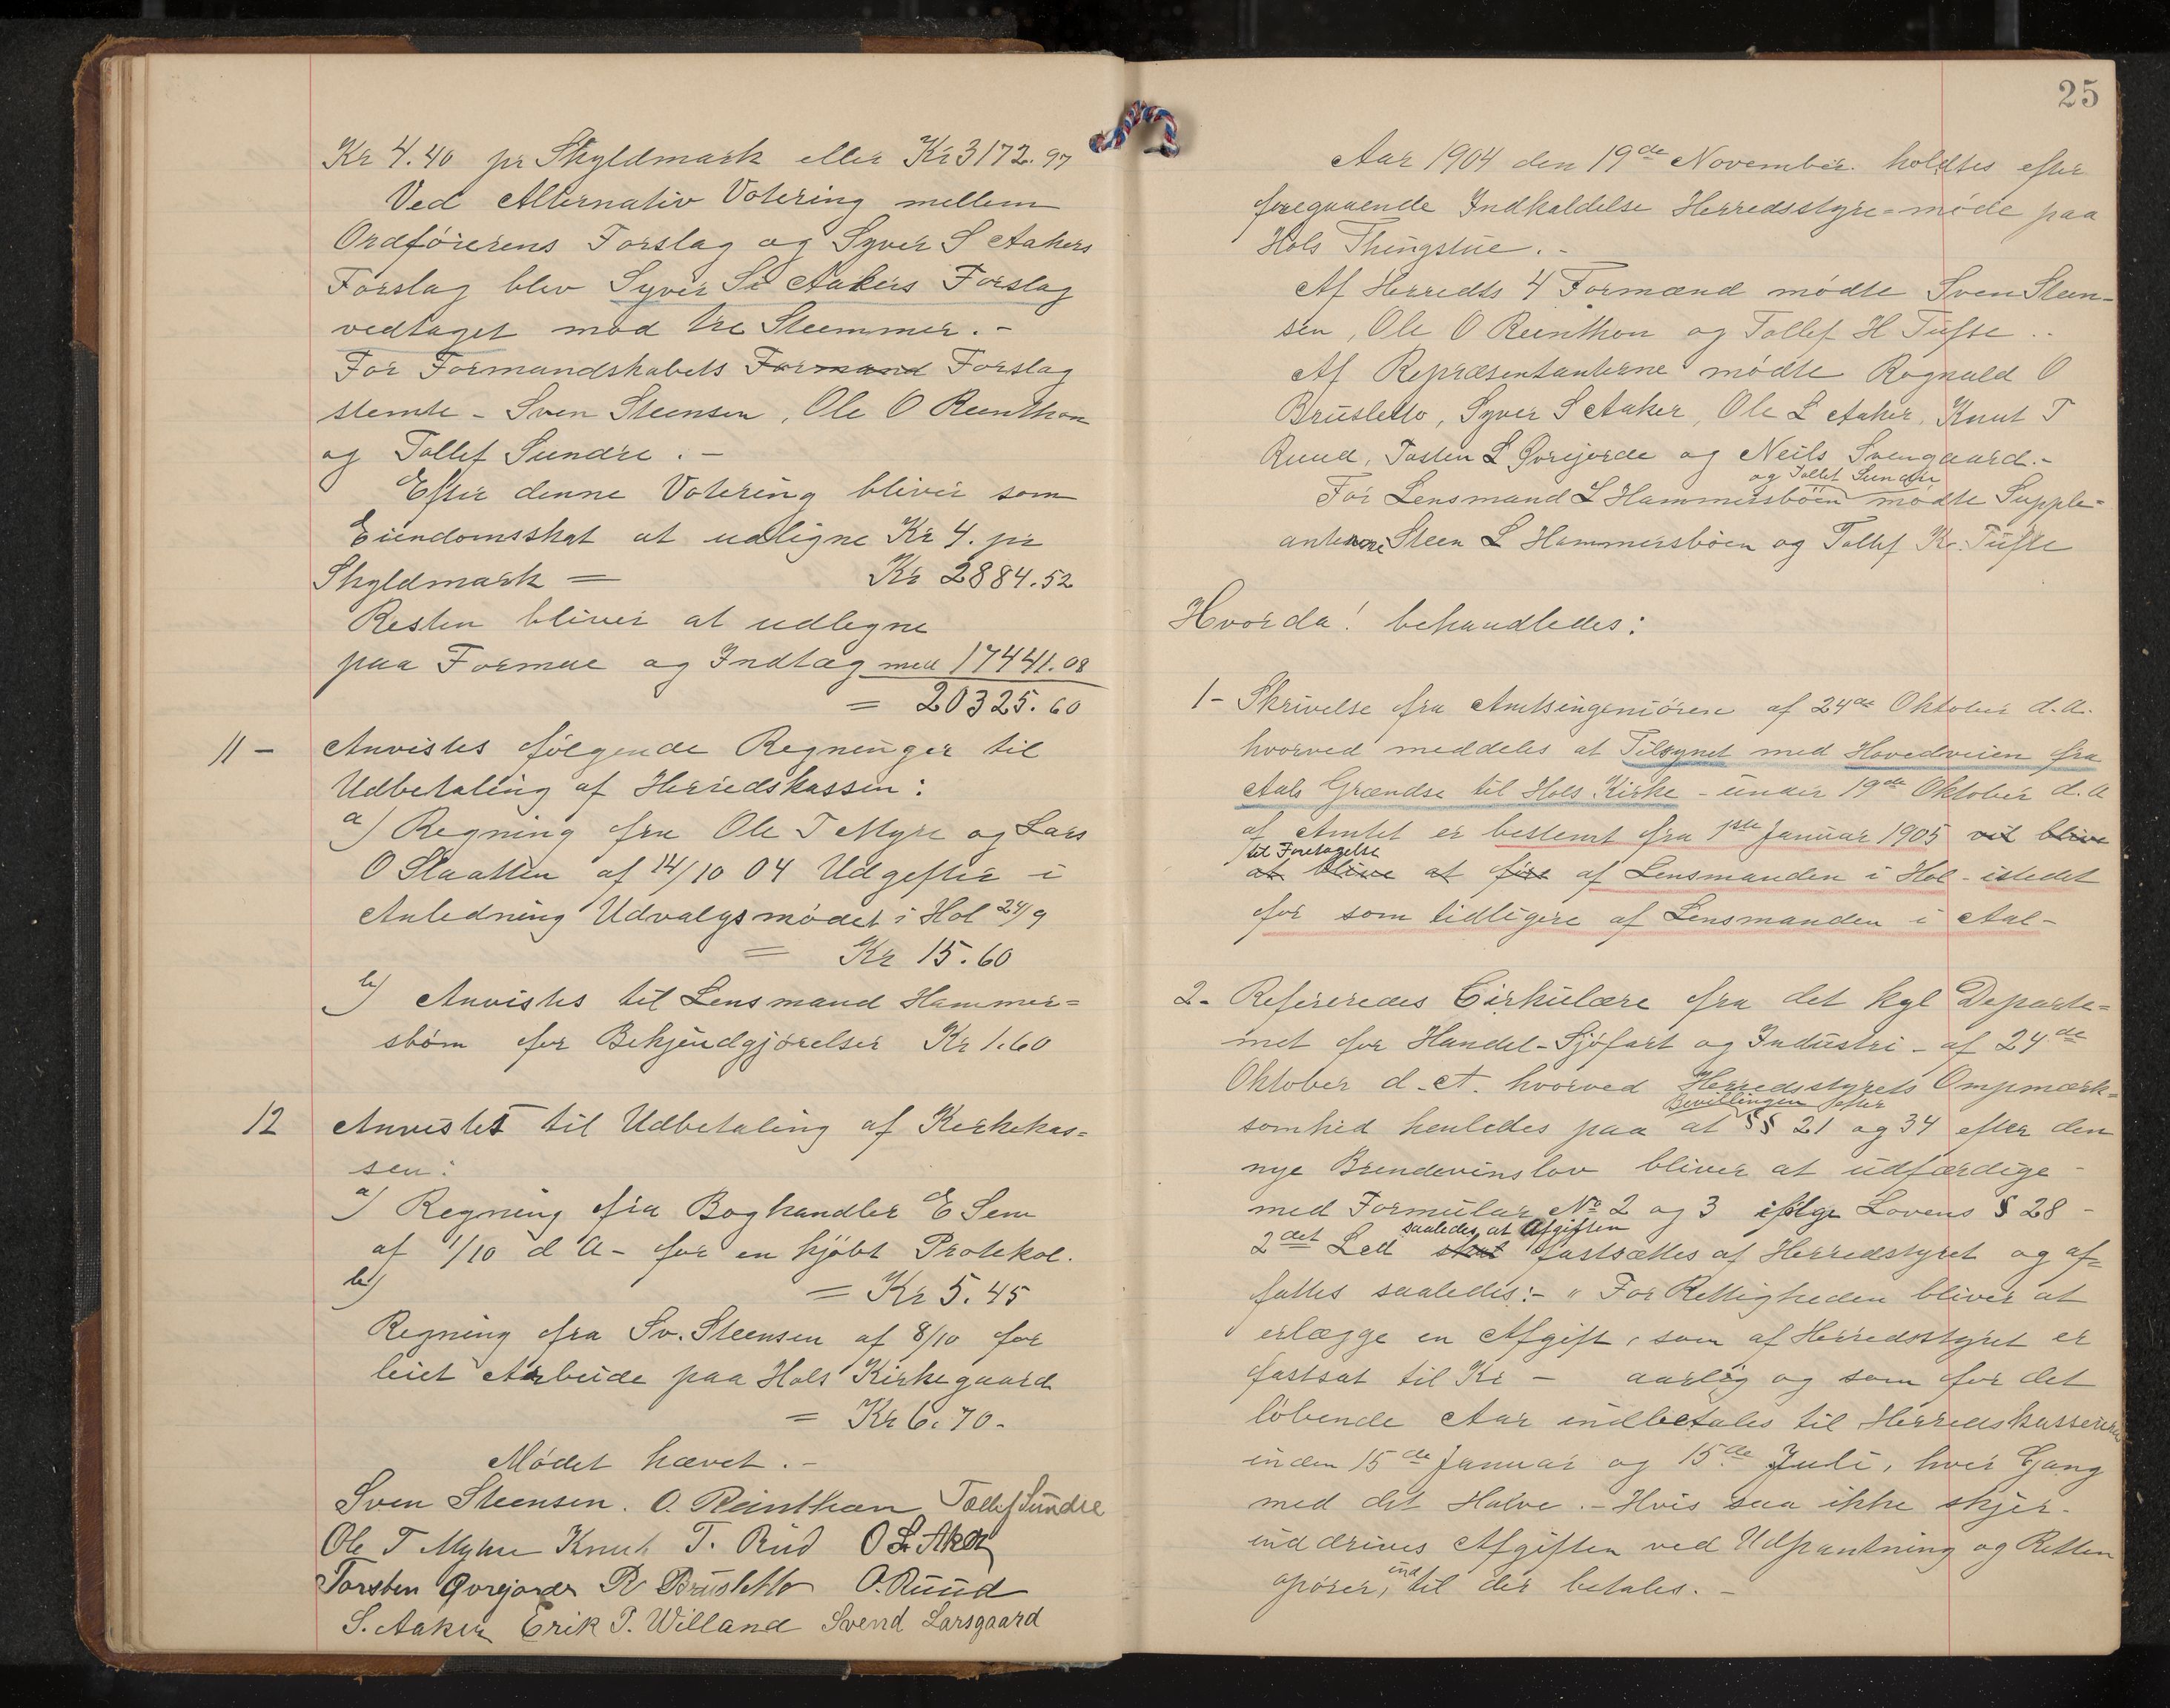 Kr 4.40 pr Skyldmark eller Kr 3172.97
Ved Alternativ Votering mellem
Ordførerens Forslag og Syver S Aakers
Forslag blev Syver S. Aakers Forslag
vedtaget mod tre Stemmer. -
For Formandskabets Formand Forslag
stemte - Sven Steensen, Ole O Reinthon
og Tollef Sundre. -
Efter denne Votering bliver som
Eiendomsskat at udligne Kr 4. pr
Skyldmark = Kr 2884.52
Resten bliver at udlegne
paa Formue og Indtæg med 17441.08
= 20325.60
11 - Anvistes følgende Regninger til
Udbetaling af Herredskassen:
a) Regning fra Ole T Myre og Lars
O Slaatten af 14/10 04 Udgefter i
Anledning Udvalgsmødet i Hol 24/9
= Kr 15.60
b) Anvistes til Lensmand Hammer=
sbøm for Bekjendgjørelser Kr 1.60
12 Anvistes til Udbetaling af Kirkekas=
sen:
a) Regning fra Boghandler E Sem
af 1/10 d A - for en kjøbt Protokol.
= Kr 5.45
b)
Regning fra Sv. Steensen af 8/10 for
leiet Arbeide paa Hols Kirkegaard
= Kr 6.70 -
Mødet hævet. -
Sven Steensen. O. Reinthon Tollef Sundre
Ole T Myhre Knut T. Rud O L. Aker
Torsten Qvrejorde R Brusletto O. Ruud
S. Aaker Erik P. Willand Svend Larsgaard
25
Aar 1904 den 19de November. holdtes efter
foregaaende Indkaldelse Herredsstyre=møde paa
Hols Thingstue. -
Af Herredts 4 Formænd mødte Sven Steen-
sen, Ole O Reinthon og Tollef H Tufte ..
Af Repræsentanterne mødte Rognald O
Brusletto, Syver S Aaker, Ole L Aaker, Knut T
Ruud, Tosten L Qvrejorde og Neils Svengaard. -
og Tollef Sundre
For Lensmand L Hammersbøen mødte Supple=
anterne Steen L Hammersbøen og Tollef K. Tufte
Hvorda! behandledes:
1 - Skrivelse fra Amtsingeniøren af 24de Oktober d.a.
hvorved meddeles at Tilsynet med Hovedveien fra
Aals Grændse til Hols Kirke - under 19de Oktober d.a
af Amtet er bestemt fra 1ste Januar 1905 vil blive
til Foretagelse
at blive at føre af Lensmanden i Hol - istedet
for som tidligere af Lensmanden i Aal -
2 - Refereredes Cirkulære fra det kgl Departe=
met for Handel - Sjøfart og Industri - af 24de
Oktober d. A. hvorved Herredsstyrets Ompmærk=
Bevillingen efter
somhed henledes paa at §§ 21 og 34 efter den
nye Brendevinslov bliver at udfærdige -
med Formular No 2 og 3 ifølge Lovens § 28 -
saaledes at Afgiften
2det Led skal fastsættes af Herredstyret og af=
fattes saaledes: - " For Rettigheden bliver at
erlægge en Afgift, som af Herredsstyret er
fastsat til Kr - aarlig og som for det
løbende Aar indbetales til Herredskassereren
inden 15de Januar og 15de Juli, hver Gang
med det Halve. - Hvis saa ikke skjer -
inddrives Afgiften ved Udpantning og Retten
ind
opører, til der betales. -